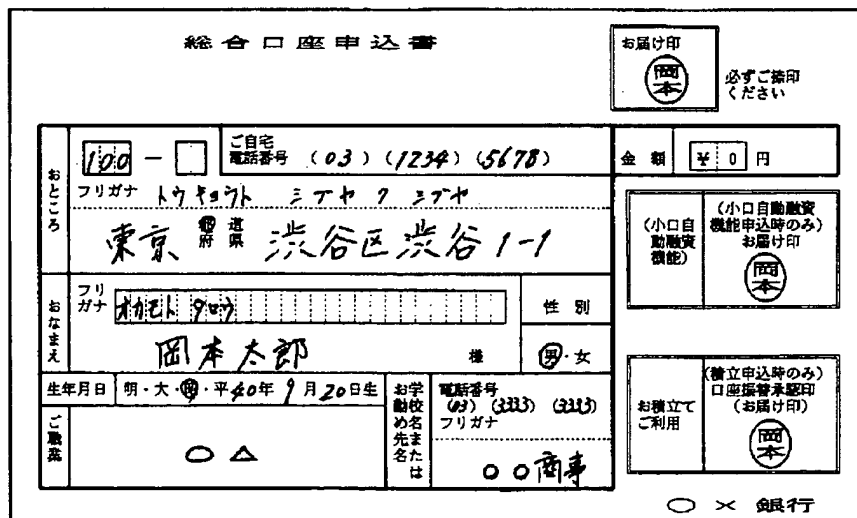 総合口座申込書
お届け印
岡本
必ずご捺印
ください
おところ
100 -
ご自宅
電話番号 (03) (1234) (5678)
金額 ¥ 0 円
フリガナ トウキョウト シブヤク シブヤ
東京 都道府県 渋谷区渋谷1-1
(小口自動融資機能)
(小口自動融資
機能申込時のみ)
お届け印
岡本
おなまえ
フリガナ オカモト タロウ
性別
岡本太郎 様
男・女
生年月日 明・大・昭・平40年9月20日生
お勤め先名または学校名
電話番号
(03) (3333) (3333)
フリガナ
○○商事
ご職業
○△
お積立て
ご利用
(積立申込時のみ)
口座振替承認印
(お届け印)
岡本
○×銀行